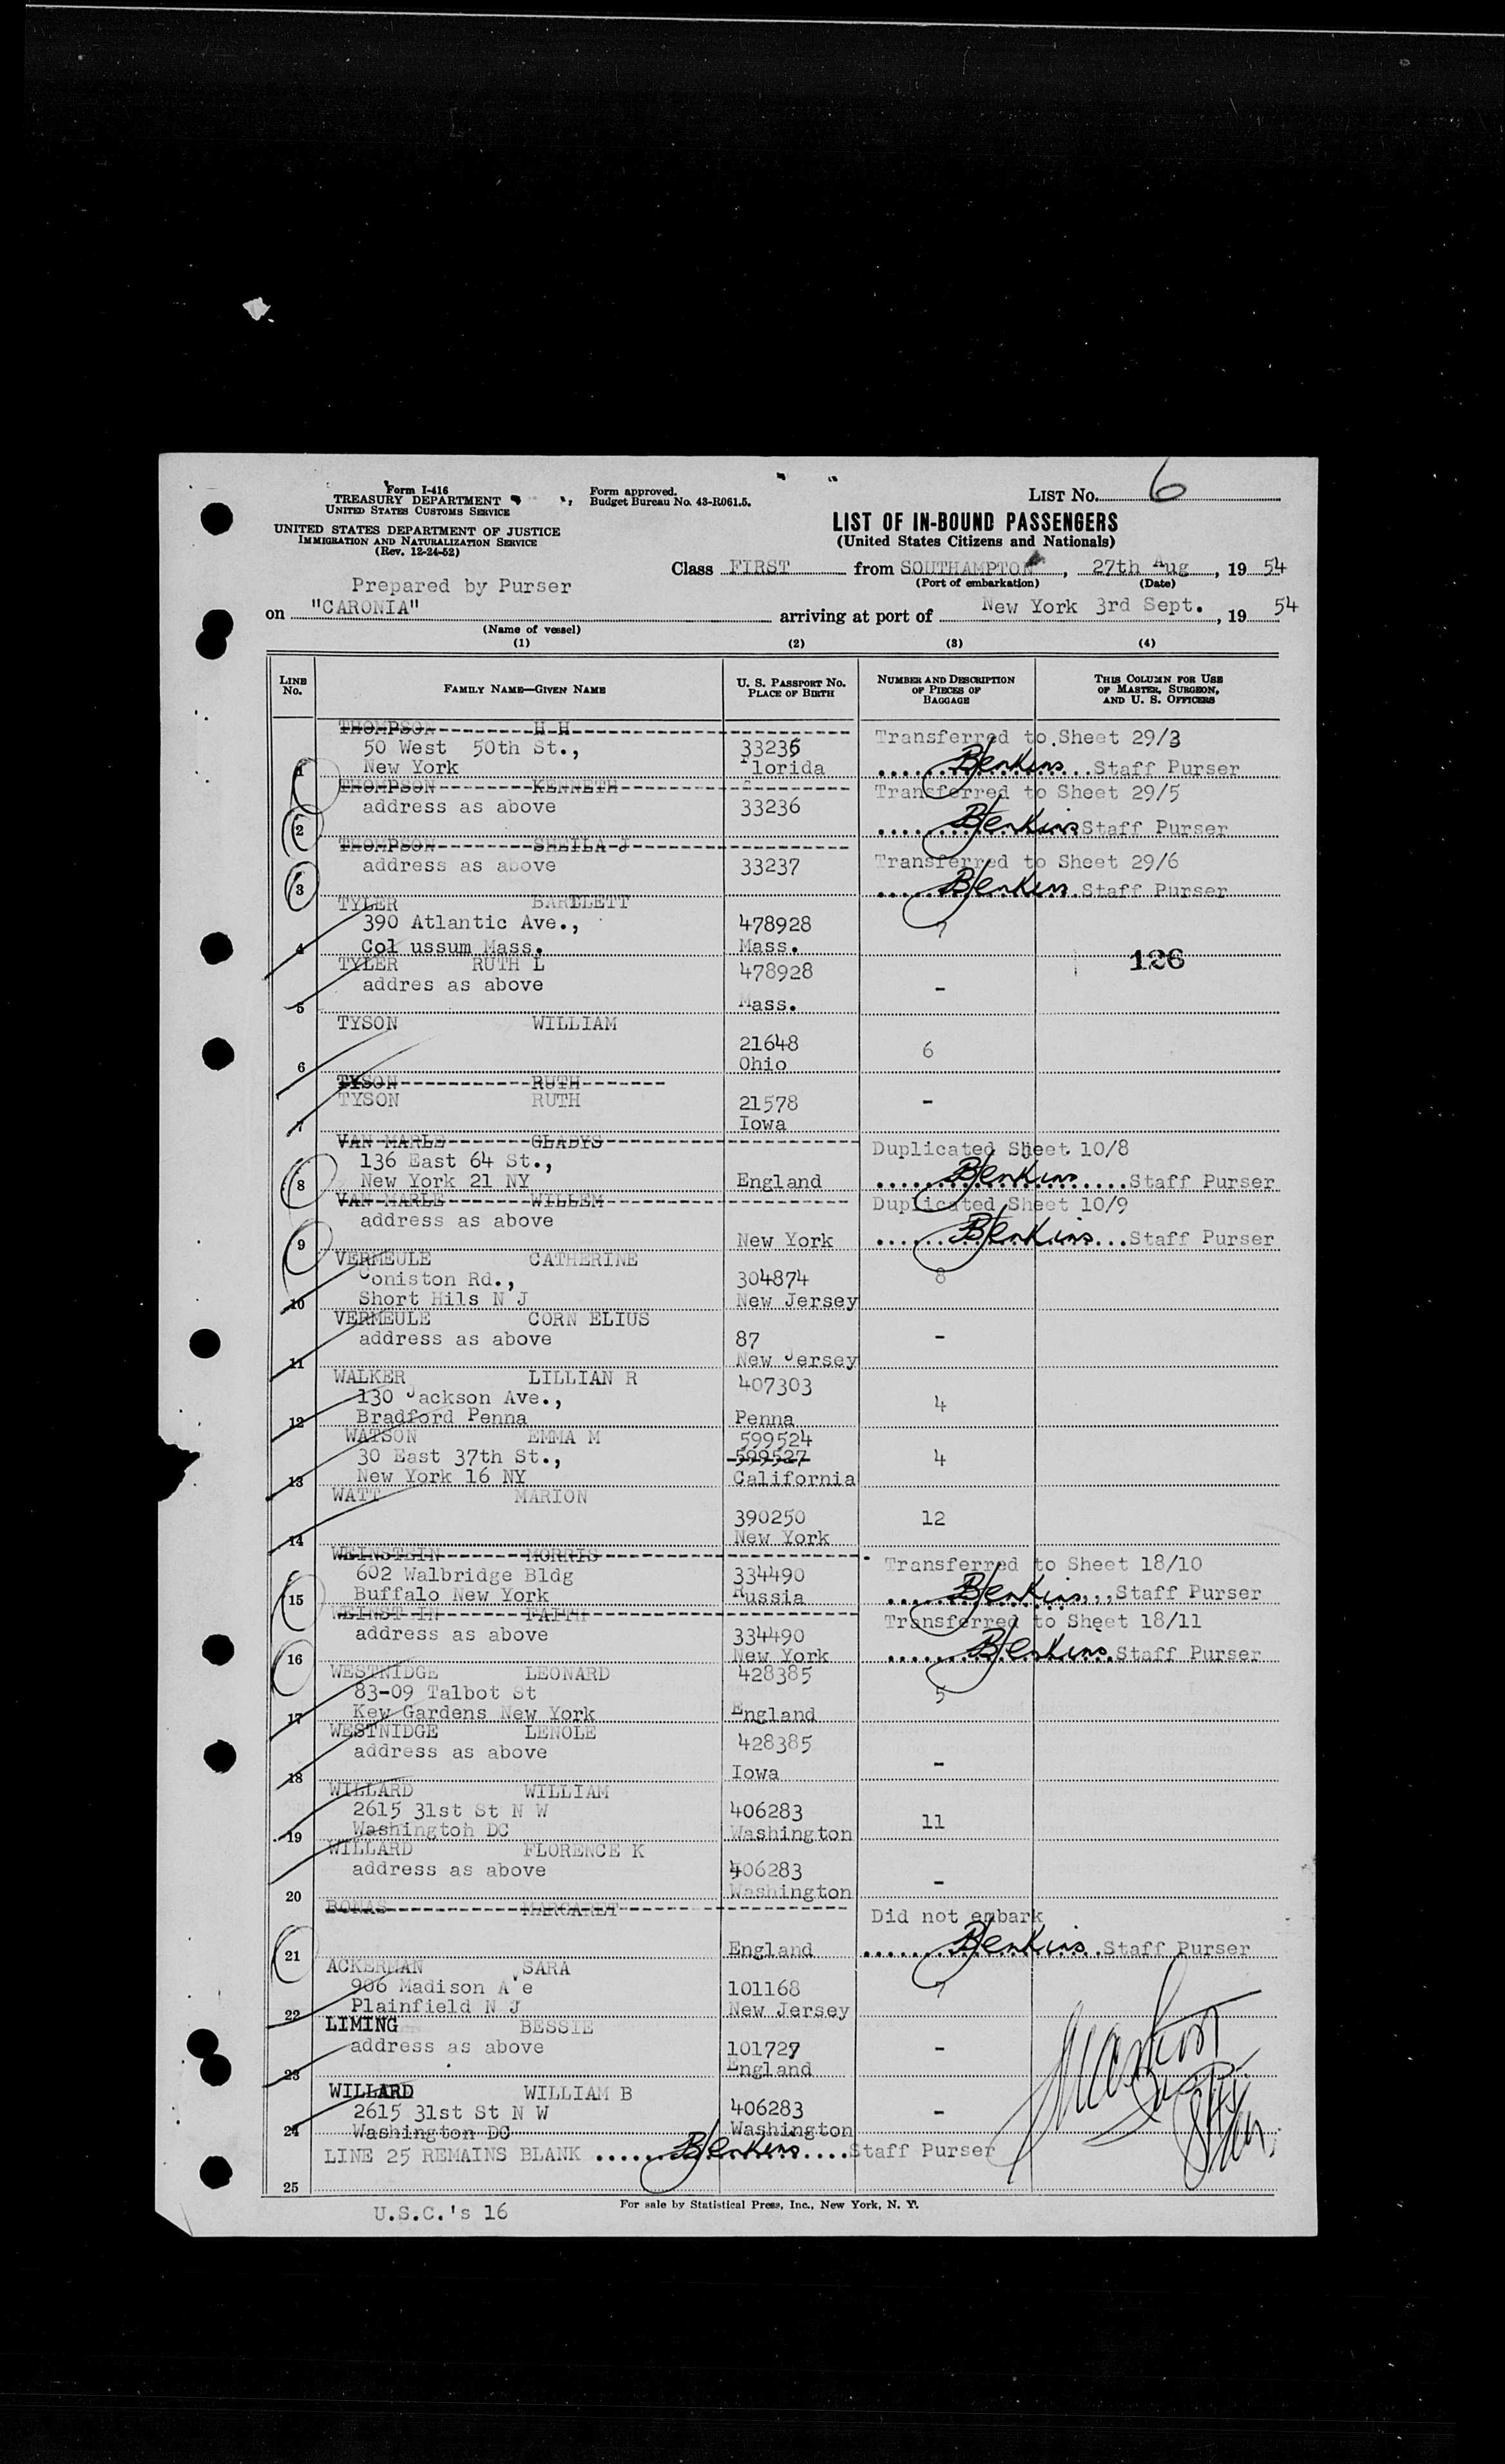 Form I-416
TREASURY DEPARTMENT
UNITED STATES CUSTOMS SERVICE
Form approved.
Budget Bureau No. 43-R061.5.
LIST No. 6
UNITED STATES DEPARTMENT OF JUSTICE
IMMIGRATION AND NATURALIZATION SERVICE
(Rev. 12-24-52)
LIST OF IN-BOUND PASSENGERS
(United States Citizens and Nationals)
Class FIRST from SOUTHAMPTON, 27th Aug, 19 54
(Port of embarkation) (Date)
Prepared by Purser
on "CARONIA" arriving at port of New York 3rd Sept., 19 54
(Name of vessel)
(1) (2) (3) (4)
LINE No. FAMILY NAME—GIVEN NAME U. S. PASSPORT No. PLACE OF BIRTH NUMBER AND DESCRIPTION OF PIECES OF BAGGAGE THIS COLUMN FOR USE OF MASTER, SURGEON, AND U. S. OFFICERS
THOMPSON H H
50 West 50th St., 33236 Transferred to Sheet 29/3
1 New York Florida BJenkins Staff Purser
THOMPSON KENNETH Transferred to Sheet 29/5
address as above 33236
2 BJenkins Staff Purser
THOMPSON SHEILA J
address as above 33237 Transferred to Sheet 29/6
3 BJenkins Staff Purser
TYLER BARTLETT
390 Atlantic Ave., 478928 7
4 Col ussum Mass. Mass.
126
TYLER RUTH L 478928
addres as above -
5 Mass.
TYSON WILLIAM
21648 6
6 Ohio
TYSON RUTH
TYSON RUTH 21578 -
7 Iowa
VAN MARLE GLADYS Duplicated Sheet 10/8
136 East 64 St.,
8 New York 21 NY England BJenkins Staff Purser
VAN MARLE WILLEM Duplicated Sheet 10/9
address as above
9 New York BJenkins Staff Purser
VERMEULE CATHERINE
Coniston Rd., 304874 8
10 Short Hils N J New Jersey
VERMEULE CORN ELIUS
address as above 87 -
11 New Jersey
WALKER LILLIAN R 407303
130 Jackson Ave., 4
12 Bradford Penna Penna
WATSON EMMA M 599524
30 East 37th St., 599527 4
13 New York 16 NY California
WATT MARION
390250 12
14 New York
WEINSTEIN MORRIS Transferred to Sheet 18/10
602 Walbridge Bldg 334490
15 Buffalo New York Russia BJenkins,,,Staff Purser
WEINST IN FAITH Transferred to Sheet 18/11
address as above 334490
16 New York BJenkins Staff Purser
WESTNIDGE LEONARD 428385
83-09 Talbot St 5
17 Kew Gardens New York England
WESTNIDGE LENOLE 428385
address as above -
18 Iowa
WILLARD WILLIAM
2615 31st St N W 406283 11
19 Washingtoh DC Washington
WILLARD FLORENCE K
address as above 406283 -
20 Washington
BONAS MARGARET Did not embark
21 England BJenkins Staff Purser
ACKERMAN SARA
906 Madison Ave 101168 7
22 Plainfield N J New Jersey
LIMING BESSIE
address as above 101727 -
23 England
WILLARD WILLIAM B
2615 31st St N W 406283 -
24 Washington DC Washington
LINE 25 REMAINS BLANK BJenkins Staff Purser
25
U.S.C.'s 16
For sale by Statistical Press, Inc., New York, N. Y.